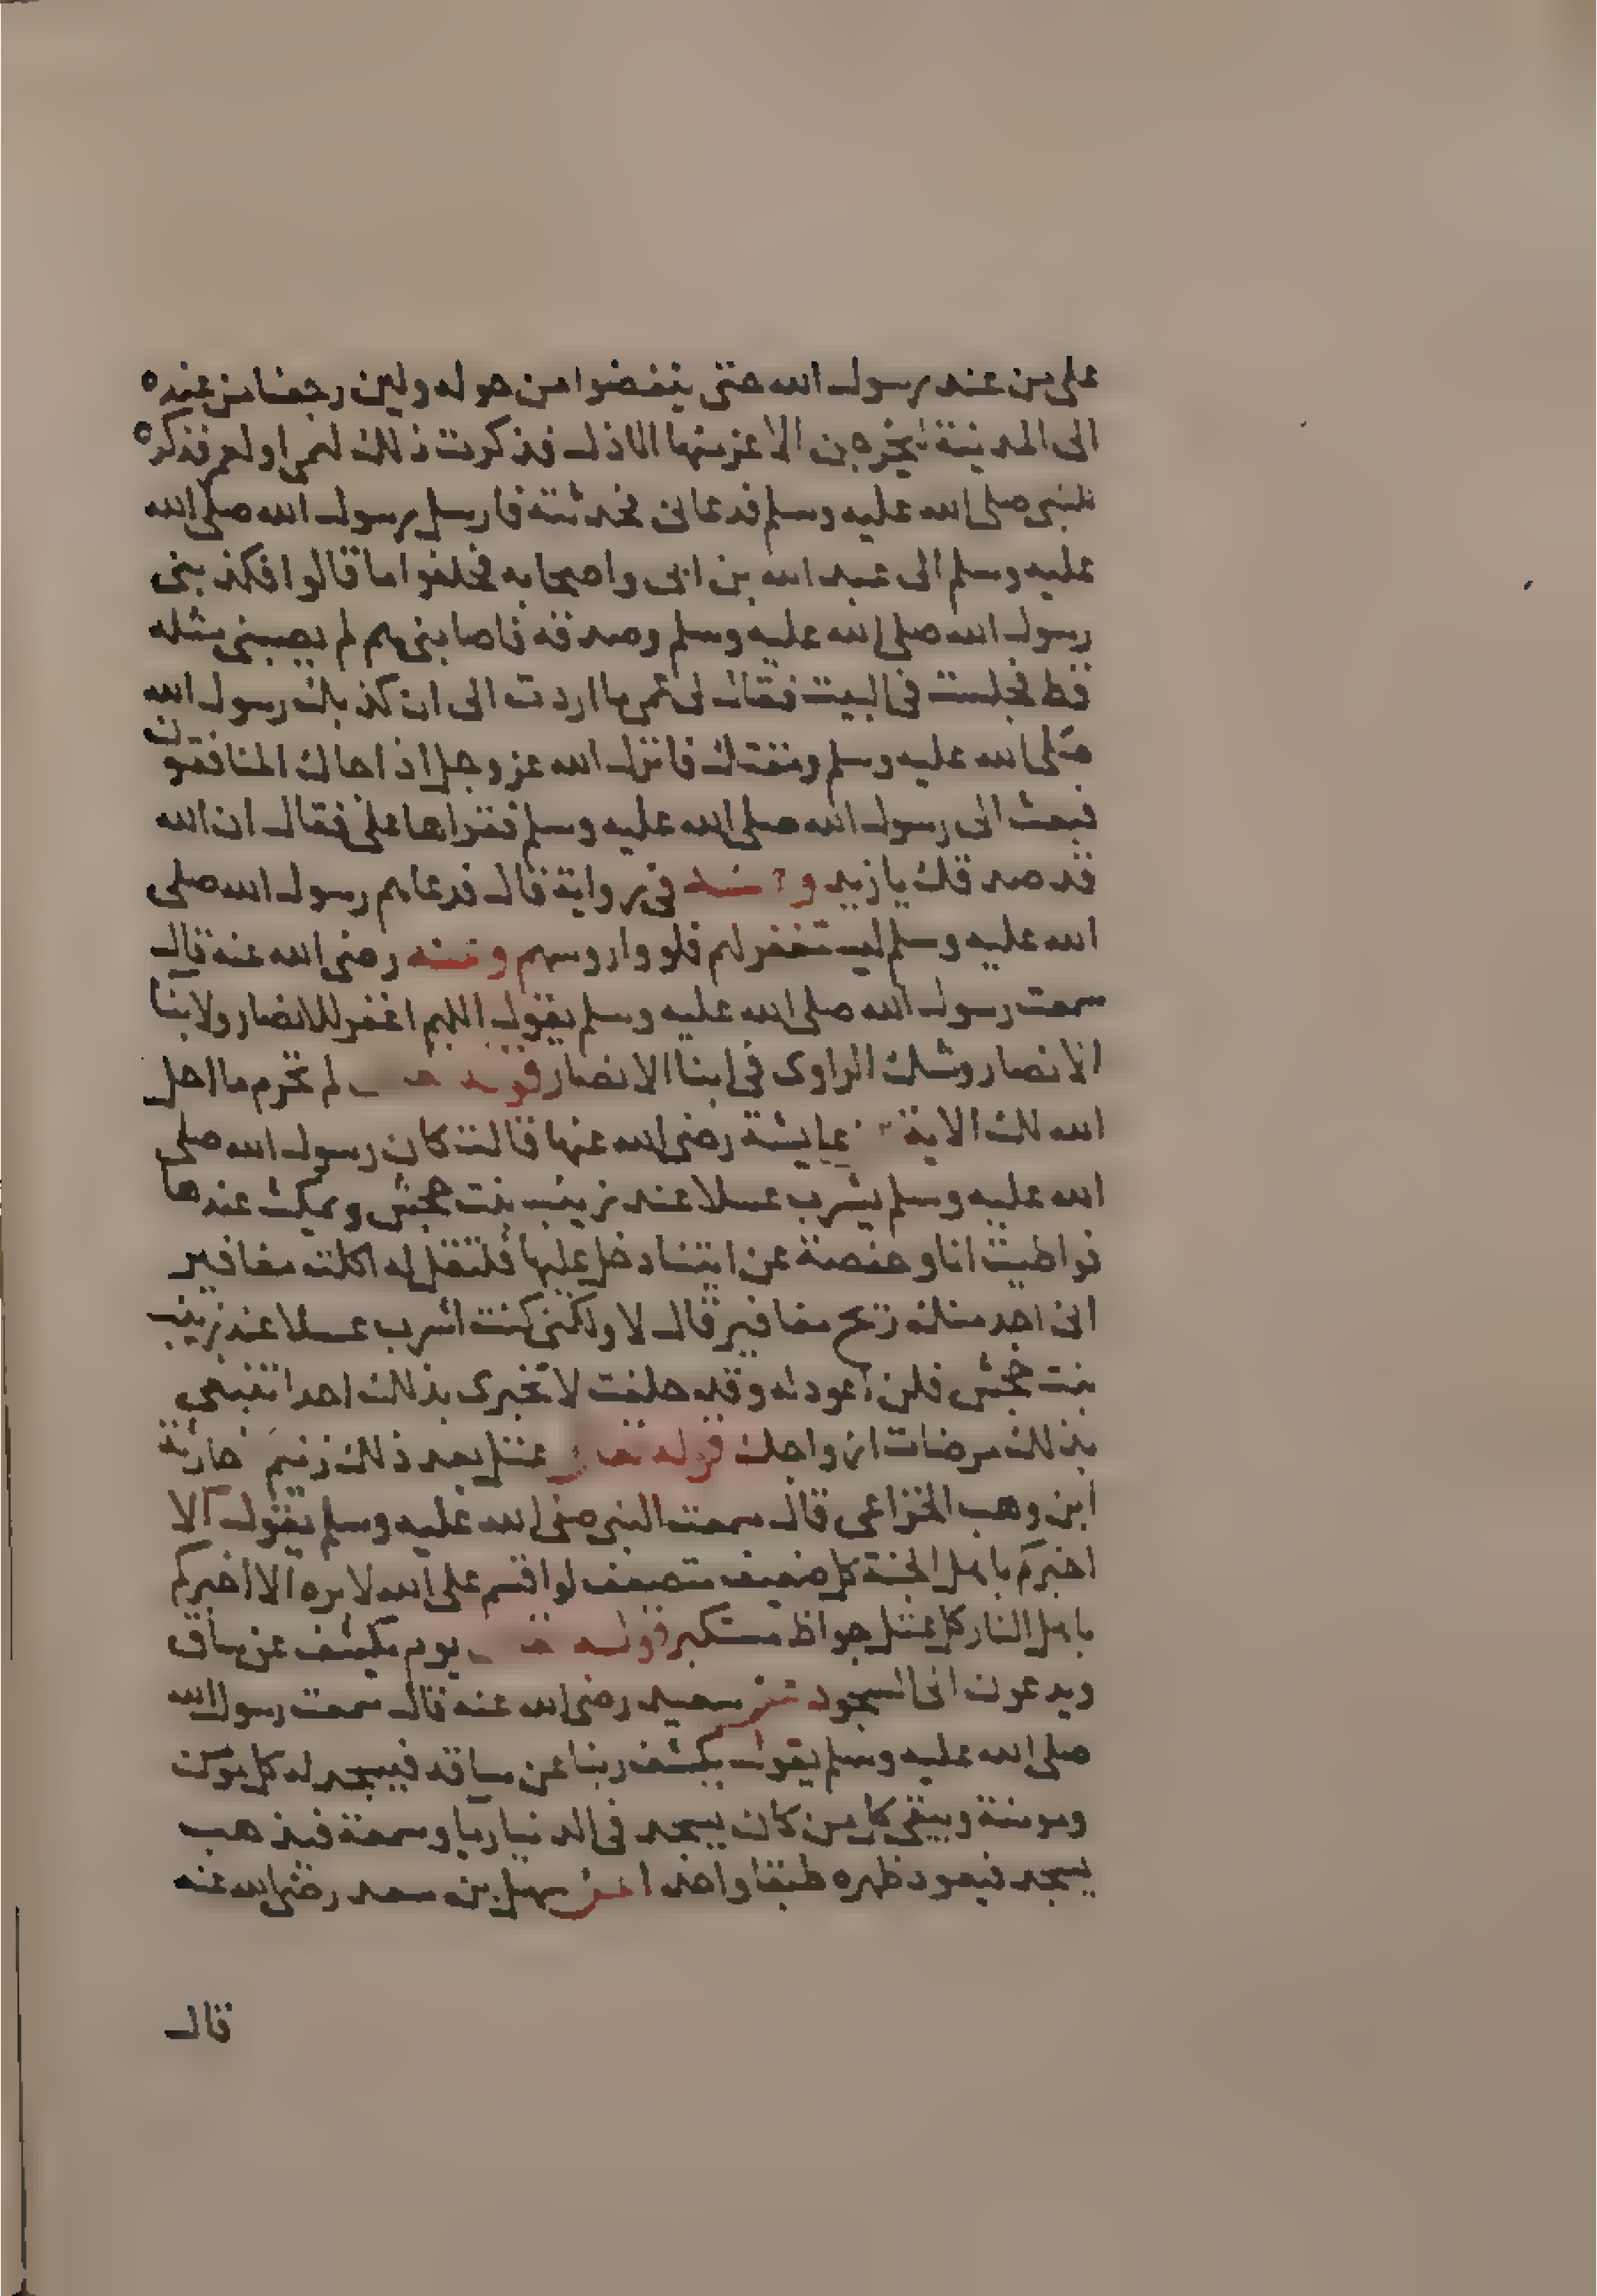 على من عند رسول الله حتى ينفضوا من حوله ولين رجعنا من عنده
الى المدينة ليخرجن الاعز منها الاذل فذكرت ذلك لعمى او لعمر فذكره
للنبى صلى الله عليه وسلم فدعانى فحدثته فارسل رسول الله صلى الله
عليه وسلم الى عبد الله بن ابى واصحابه فحلفوا ما قالوا فكذبنى
رسول الله صلى الله عليه وسلم وصدقه فاصابنى هم لم يصبنى مثله
قط فجلست فى البيت فقال لى عمى ما اردت الى ان كذبك رسول الله
صلى الله عليه وسلم ومقتك فانزل الله عز وجل اذا جاك المنافقون
فبعث الى رسول الله صلى الله عليه وسلم فقراها على فقال ان الله
قد صدقك يا زيد فى رواية قال فدعاهم رسول الله صلى
الله عليه وسلم ليستغفر لهم فلووا روسهم وعنه رضى الله عنه قال
سمعت رسول الله صلى الله عليه وسلم يقول اللهم اغفر للانصار ولابنا
الانصار وشك الراوى فى ابنا ابنا الانصار قوله لم تحرم ما احل
الله لك الاية عايشة رضى الله عنها قالت كان رسول الله صلى
الله عليه وسلم يشرب عسلا عند زينب بنت جحش ويمكث عندها
فواطيت انا وحفصة عن ايتنا دخل عليها فلتقل له اكلت مغافير
انى اجد منك ريح مغافير قال لا ولكنى كنت اشرب عسلا عند زينب
بنت جحش فلن اعود له وقد حلفت لا تخبرى بذلك احدا تبتغى
بذلك مرضات ازواجك قوله تعالى عتل بعد ذلك زنيم حارثة
ابن وهب الخزاعى قال سمعت النبى صلى الله عليه وسلم يقول الا
اخبركم باهل الجنة كل ضعيف متضعف لو اقسم على الله لابره الا اخبركم
باهل النار كل عتل جواظ مستكبر قوله يوم يكشف عن ساق
ويدعون الى السجود سعيد رضى الله عنه قال سمعت رسول الله
صلى الله عليه وسلم يقول يكشف ربنا عن ساقه فيسجد له كل مومن
ومومنة ويبقى كل من كان يسجد فى الدنيا ريا وسمعة فيذهب
يسجد فيعود ظهره طبقا واحدا عن سهل بن سعد رضى الله عنه
قال